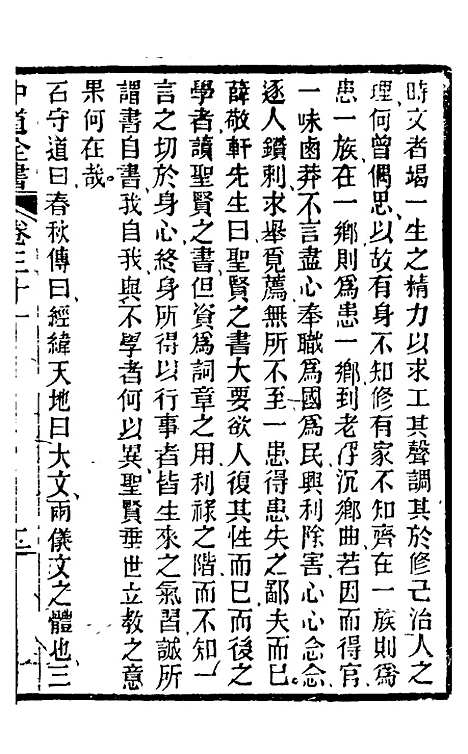 時文者竭一生之精力以求工其聲調其於修己治人之
理何曾偶思以故有身不知修有家不知齊在一族則爲
患一族在一鄉則爲患一鄉到老俘沉鄉曲若因而得官
一味鹵莽不言盡心奉職爲國爲民興利除害心心念念
逐人鑽刺求舉覓薦無所不至一患得患失之鄙夫而已
薛敬軒先生曰聖賢之書大要欲人復其性而已而後之
學者讀聖賢之書但資爲詞章之用利祿之階而不知一
言之切於身心終身所得以行事者皆生來之氣習誠所
謂書自書我自我與不學者何以異聖賢垂世立教之意
果何在哉
石守道曰春秋傳曰經緯天地曰大文兩儀文之體也三
中道全書 卷三十一